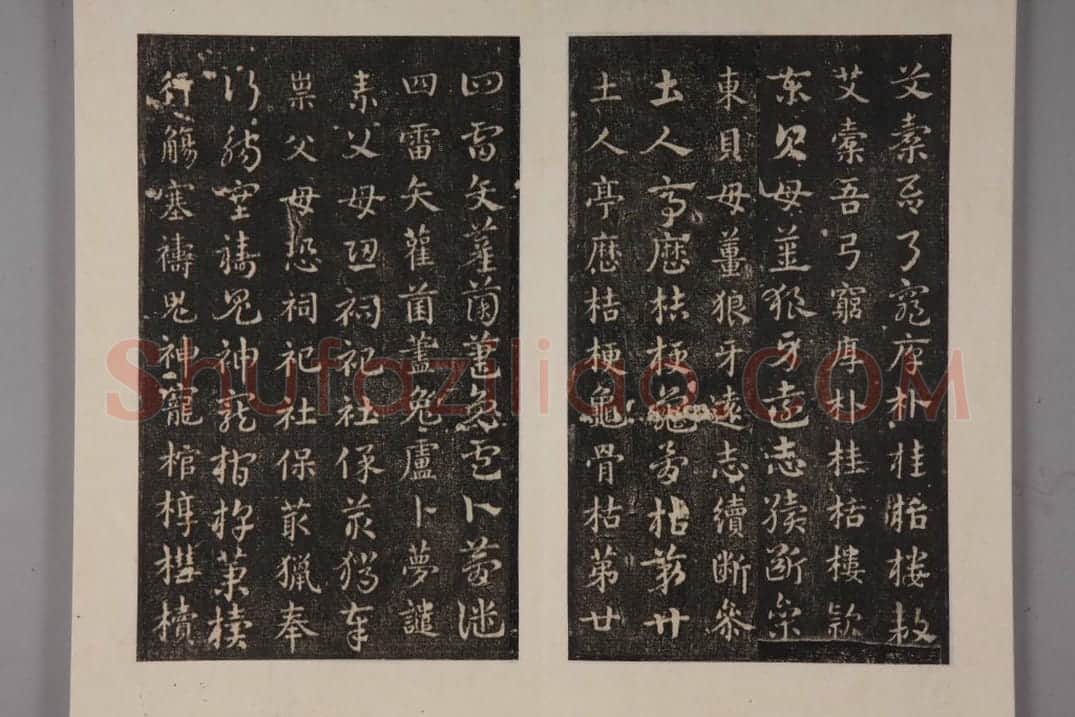 艾橐吾弓窮厚朴桂栝樓款
艾橐吾弓窮厚朴桂栝樓款
東貝母薑狼牙遠志續斷參
東貝母薑狼牙遠志續斷參
土人亭歷桔梗龜骨枯第廿
土人亭歷桔梗龜骨枯第廿
四雷矢雚菌藎兔盧卜夢譴
四雷矢雚菌藎兔盧卜夢譴
祟父母恐祠祀社保菆獵奉
祟父母恐祠祀社保菆獵奉
行觴塞禱鬼神寵棺椁槥櫝
行觴塞禱鬼神寵棺椁槥櫝
Shufaziliao.COM